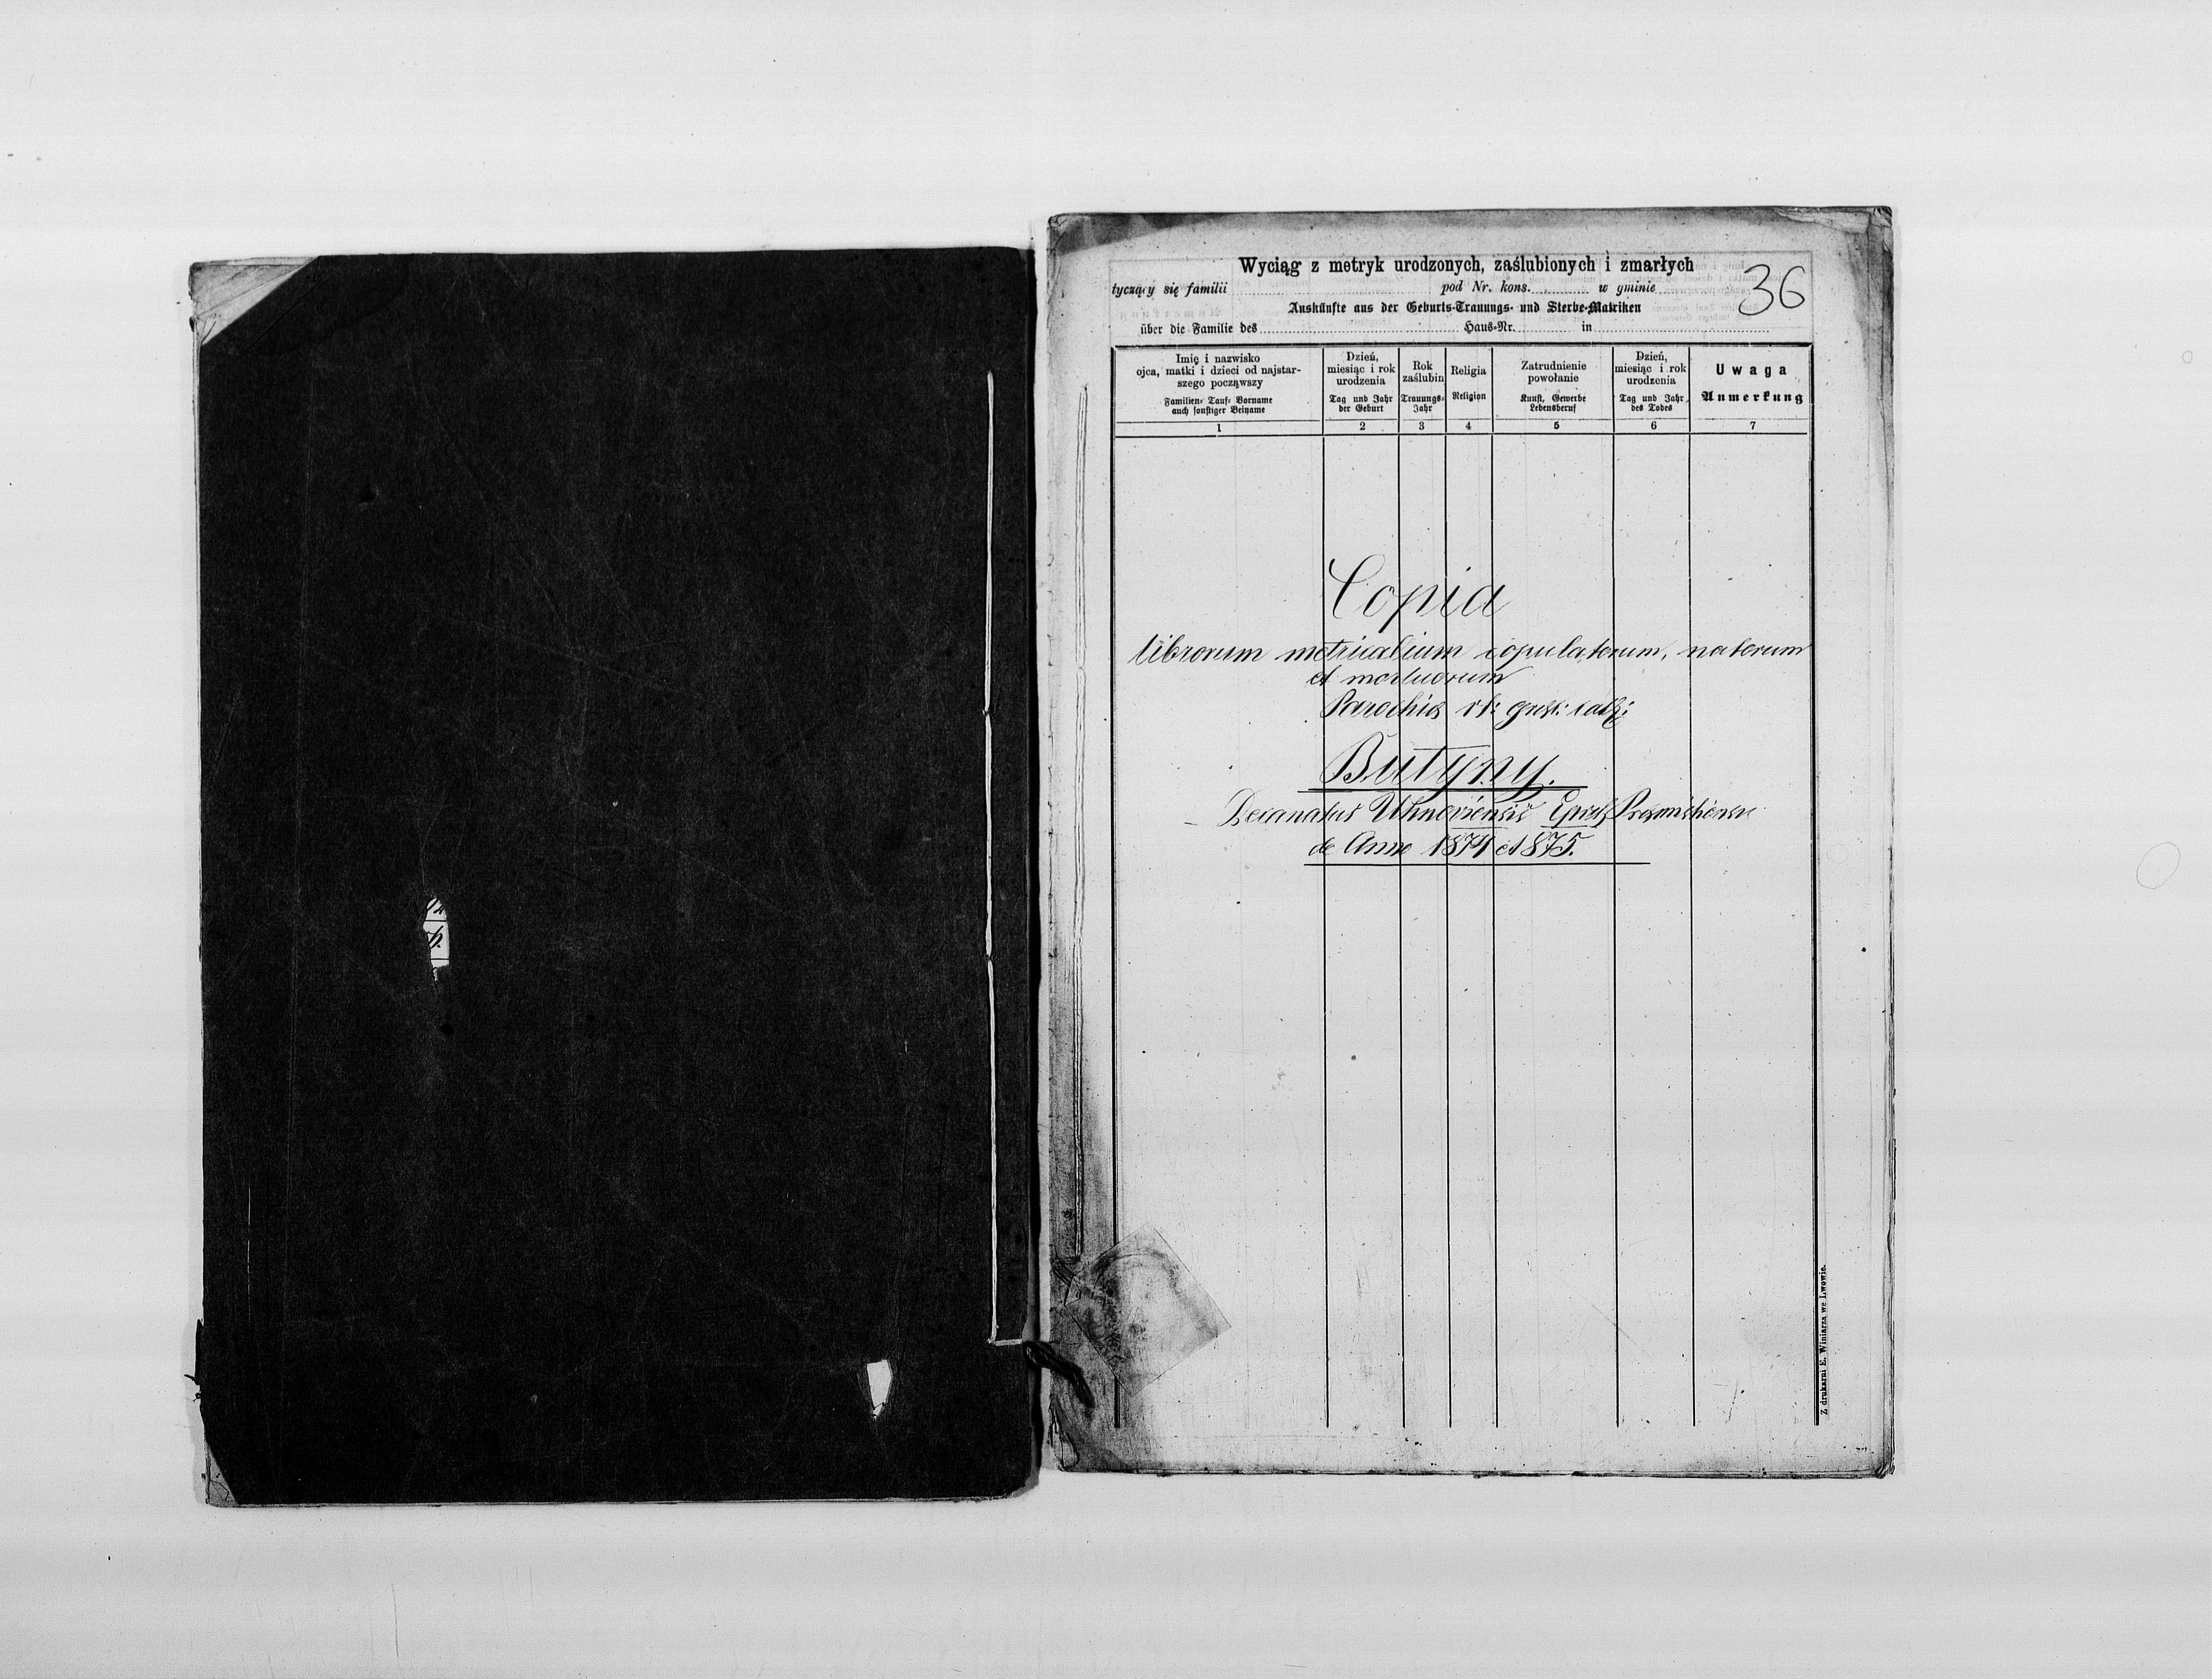 36
Wyciąg z metryk urodzonych, zaślubionych i zmarłych
tyczący się familii pod Nr. kons. w gminie
Auskünfte aus der Geburts-Trauungs- und Sterbe-Matriken
über die Familie des Haus-Nr. in
Imię i nazwisko
ojca, matki i dzieci od najstar-
szego począwszy
Familien- Tauf- Vorname
auch sonstiger Beiname
Dzień,
miesiąc i rok
urodzenia
Tag und Jahr
der Geburt
Rok
zaślubin
Trauungs-
Jahr
Religia
Religion
Zatrudnienie
powołanie
Kunst, Gewerbe
Lebensberuf
Dzień,
miesiąc i rok
urodzenia
Tag und Jahr
des Todes
Uwaga
Anmerkung
1 2 3 4 5 6 7
Copia
librorum metricalium copulatorum, natorum
et mortuorum
Parochia rt: græk: cath:
Butyny.
Decanatus Uhnoviensis
de Anno 1874 et 875.
Z drukarni E. Winiarza we Lwowie.